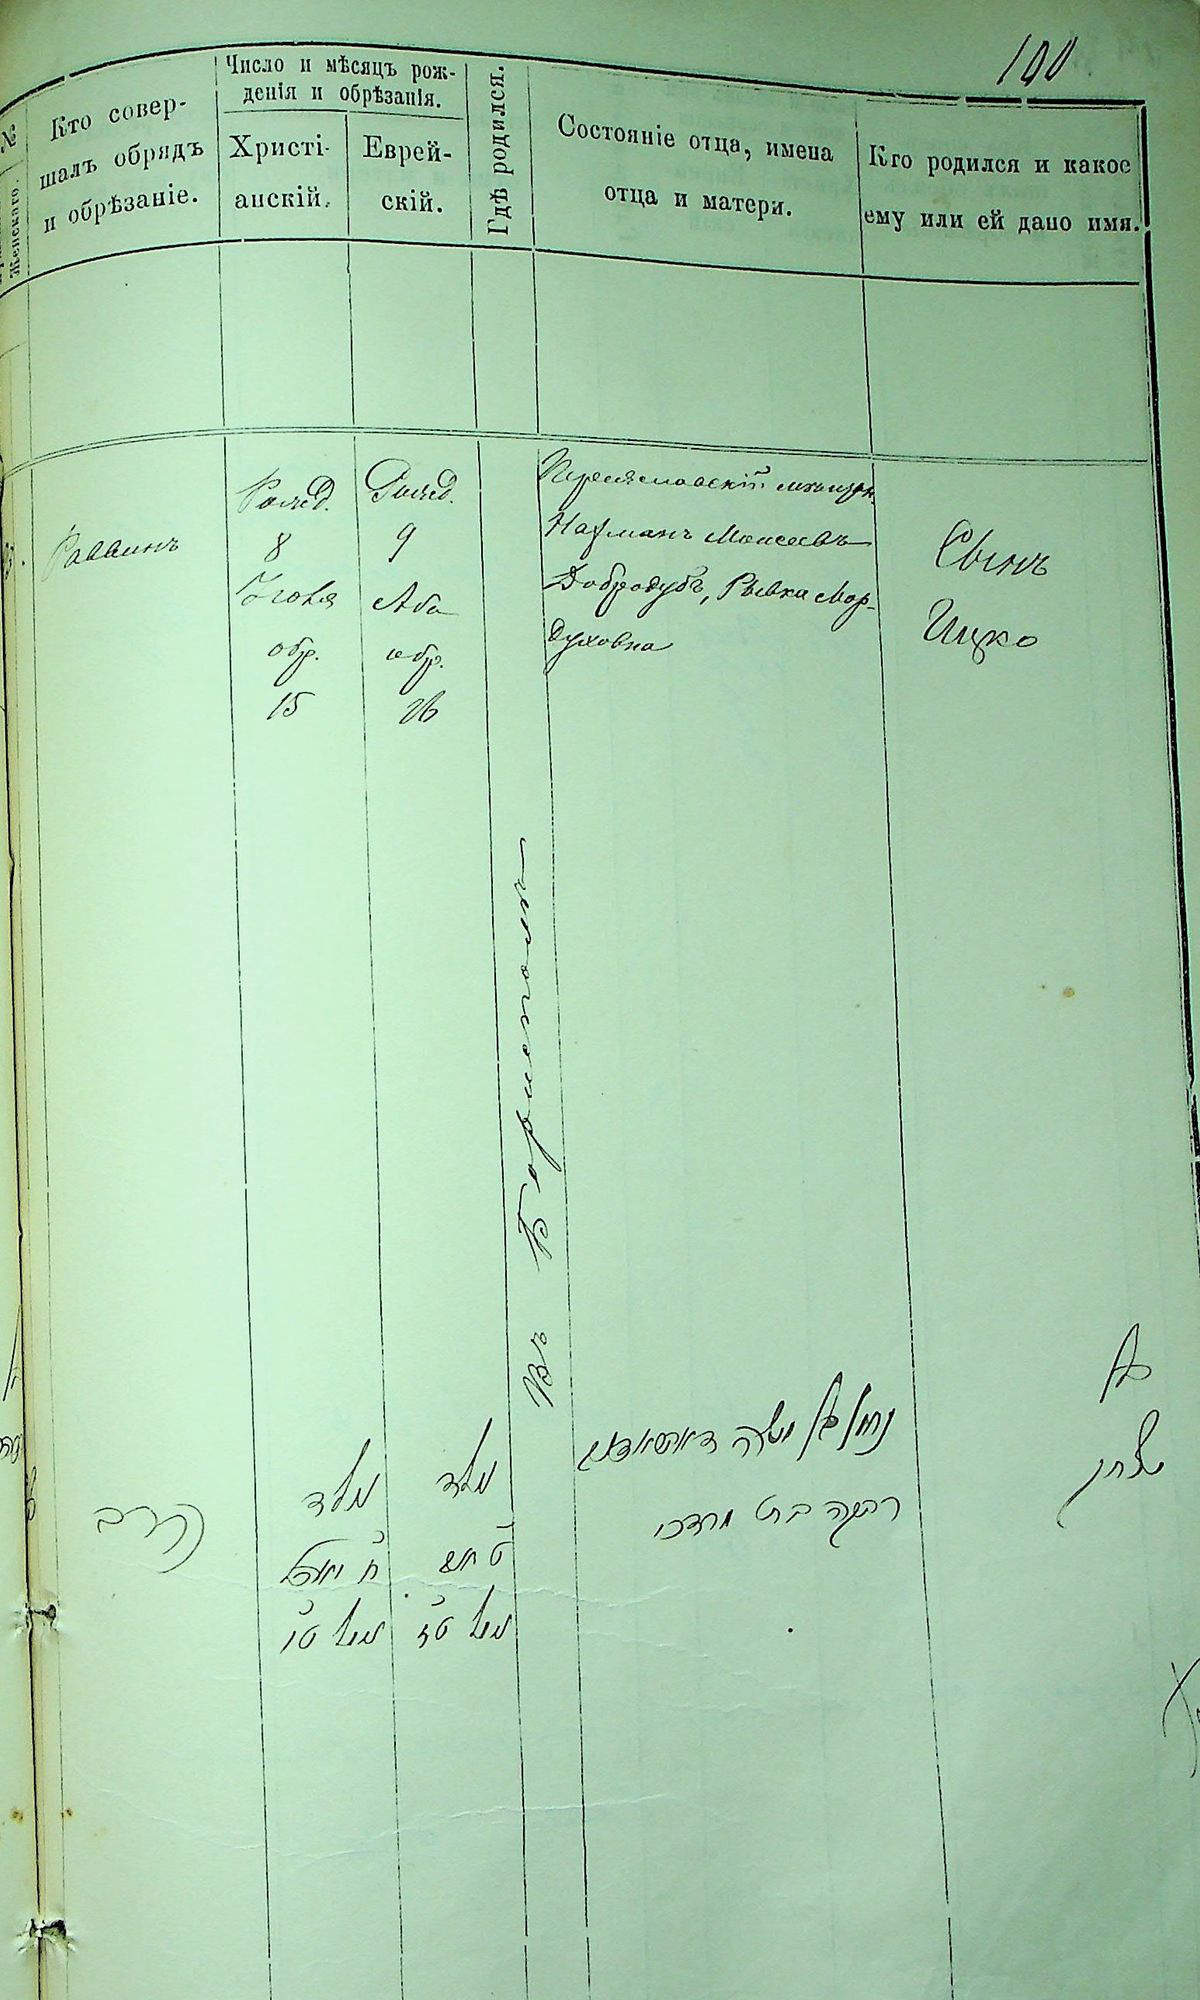 100
№
Женскаго.
Кто совер-
шалъ обрядъ
и обрѣзаніе.
Число и мѣсяцъ рож-
денія и обрѣзанія.
Христі-
анскій.
Еврей-
скій.
Гдѣ родился.
Состояніе отца, имена
отца и матери.
Кто родился и какое
ему или ей дано имя.
Раввинъ
Рожд.
8
обр.
15
Рожд.
9
Аба
обр.
26
Въ Борисполѣ
Переяславскій мѣщан.
Нахманъ Моисеевъ
Добродубъ, Рывка Мор-
духовна
Сынъ
Ицко
הרב
נולד
נולד
ט
נחמן בן משה
רבקה בת מרדכי
בן
יצחק